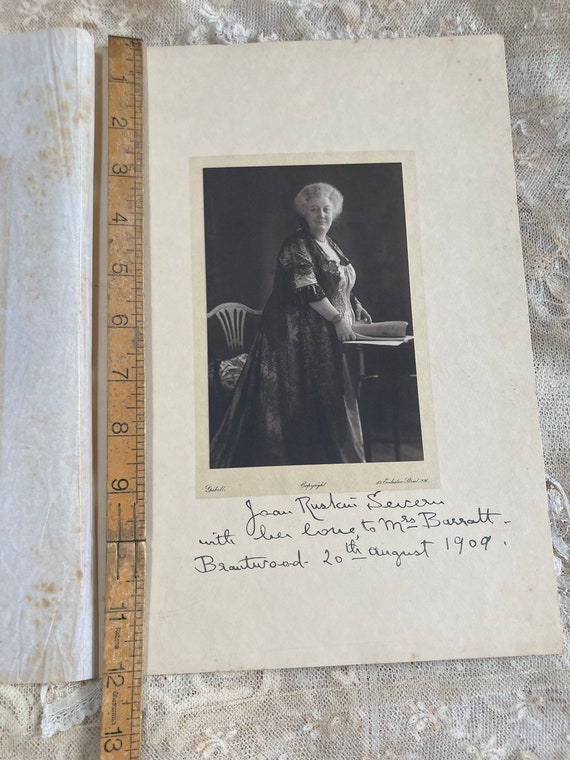 1
2
3
4
5
6
7
8
9
11
12
13
Copyright
Joan Ruskin Severn
with her love, to Mrs Barratt-
Brantwood- 20th august 1909.